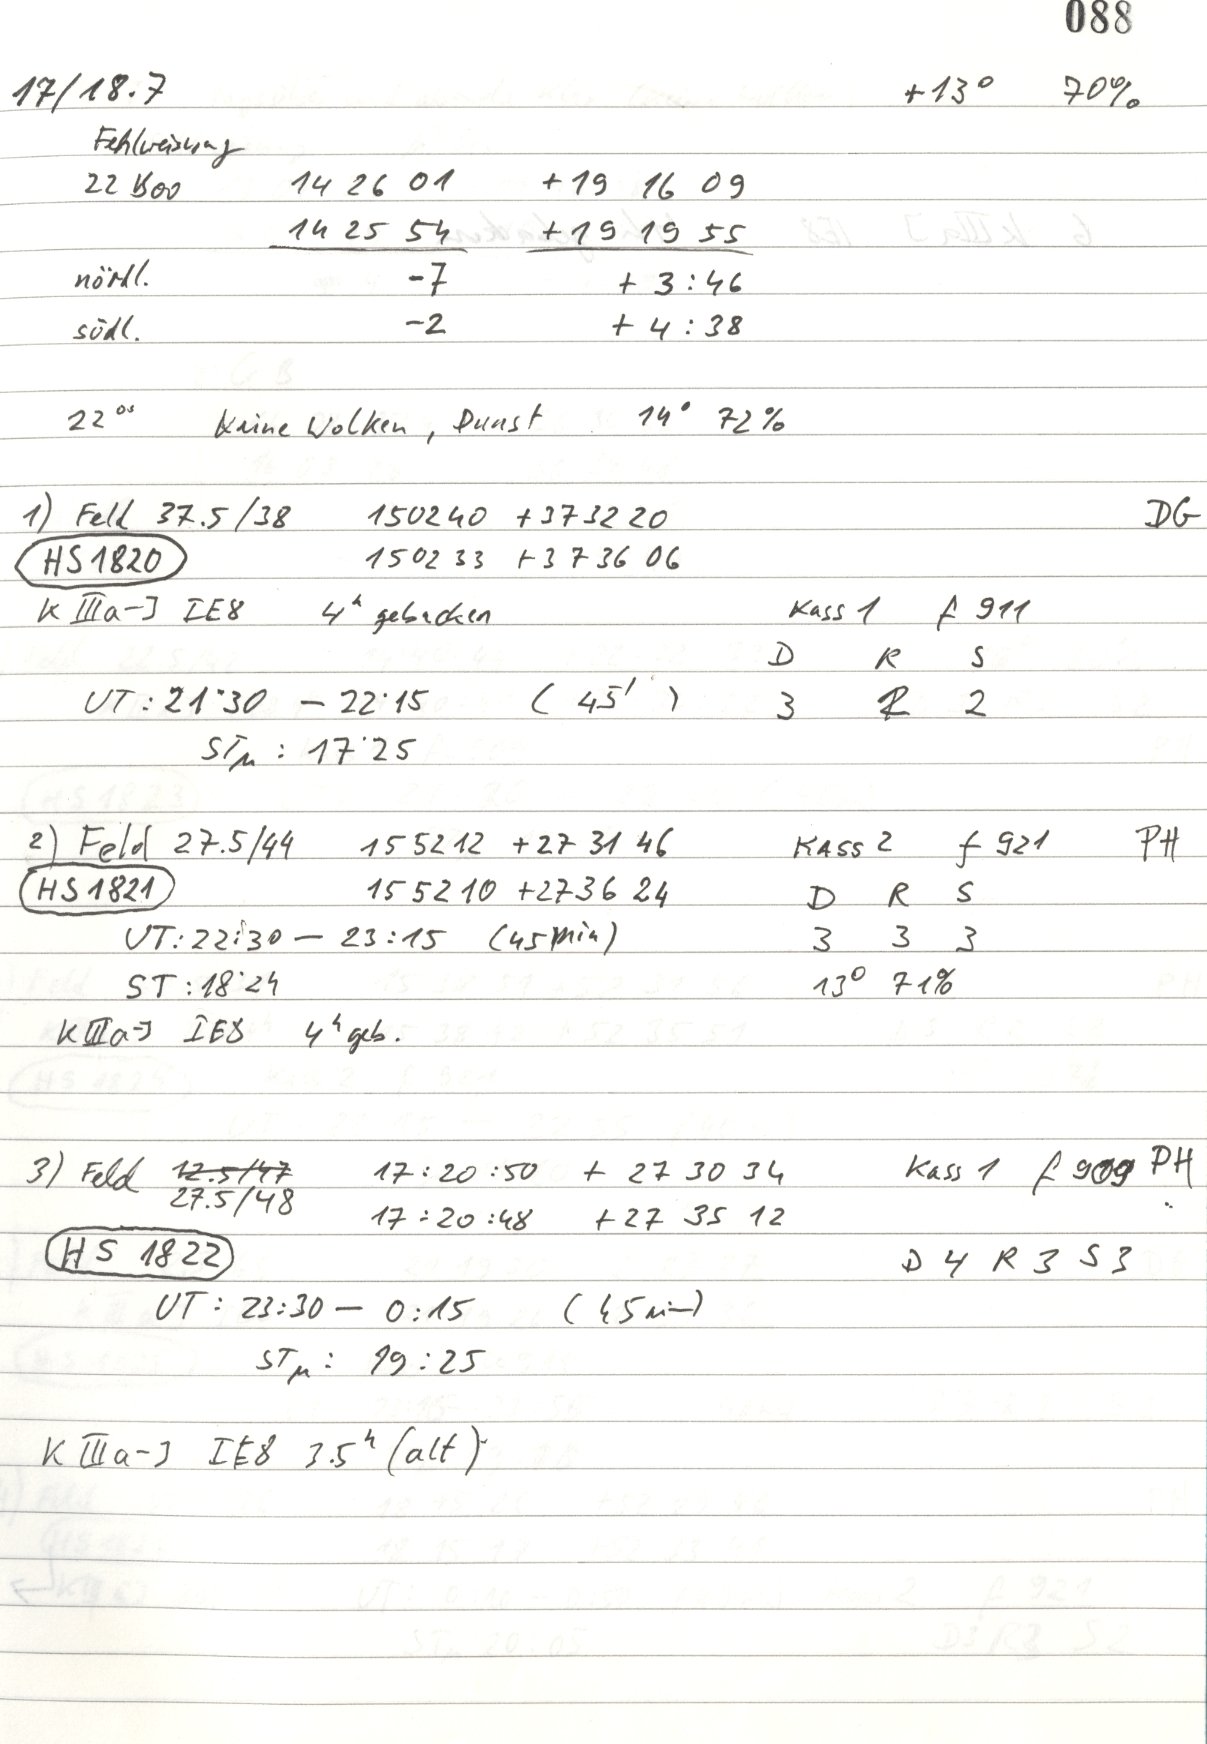 088
17/18.7 +13° 70%
Fehlweisung
22 Boo 14 26 01 +19 16 09
14 25 54 +19 19 55
nördl. -7 + 3:46
südl. -2 + 4:38
22°° Keine Wolken, Dunst 14° 72%
1) Feld 37.5/38 150240 +373220 DG
HS1820 150233 +373606
K IIIa-J IE8 4h gebacken Kass 1 f 911
D R S
UT: 21:30 – 22:15 (45') 3 2 2
STμ: 17:25
2) Feld 27.5/44 155212 +27 31 46 KASS 2 f 921 PH
HS1821 155210 +2736 24 D R S
UT: 22:30 – 23:15 (45min) 3 3 3
ST: 18:24 13° 71%
K IIIa-J IE8 4h geb.
3) Feld 12.5/47 17:20:50 + 27 30 34 Kass 1 f 909 PH
27.5/48 17:20:48 +27 35 12
HS 1822 D 4 R 3 S 3
UT: 23:30 – 0:15 (45min)
STμ: 19:25
K IIIa-J IE8 3.5h (alt)